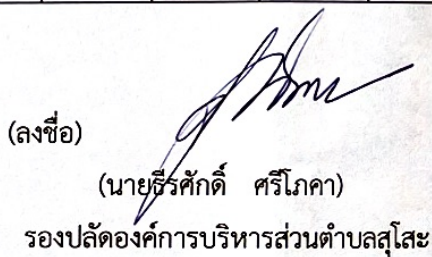 (ลงชื่อ)
(นายธีรศักดิ์ ศรีโภคา)
รองปลัดองค์การบริหารส่วนตำบลสุโสะ